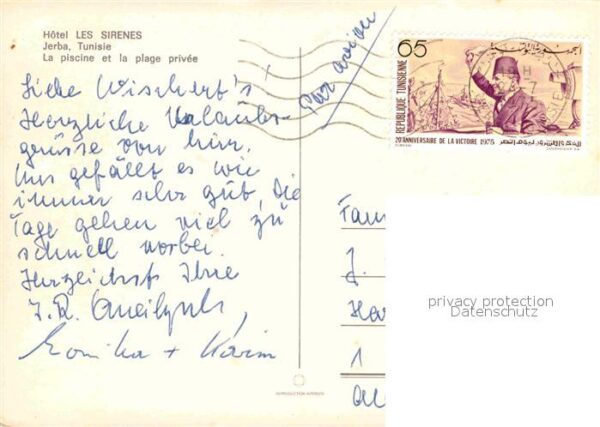 Hôtel LES SIRENES
Jerba, Tunisie
La piscine et la plage privée
Par avion
65
REPUBLIQUE TUNISIENNE
20e ANNIVERSAIRE DE LA VICTOIRE 1975
Liebe Wischert's
Herzliche Urlaubs-
grüsse von hier.
Uns gefällt es wie
immer sehr gut, Die
Tage gehen viel zu
schnell vorbei.
Herzlichst Ihre
Monika + Karim
Fam
J.
Ha
1
privacy protection
Datenschutz